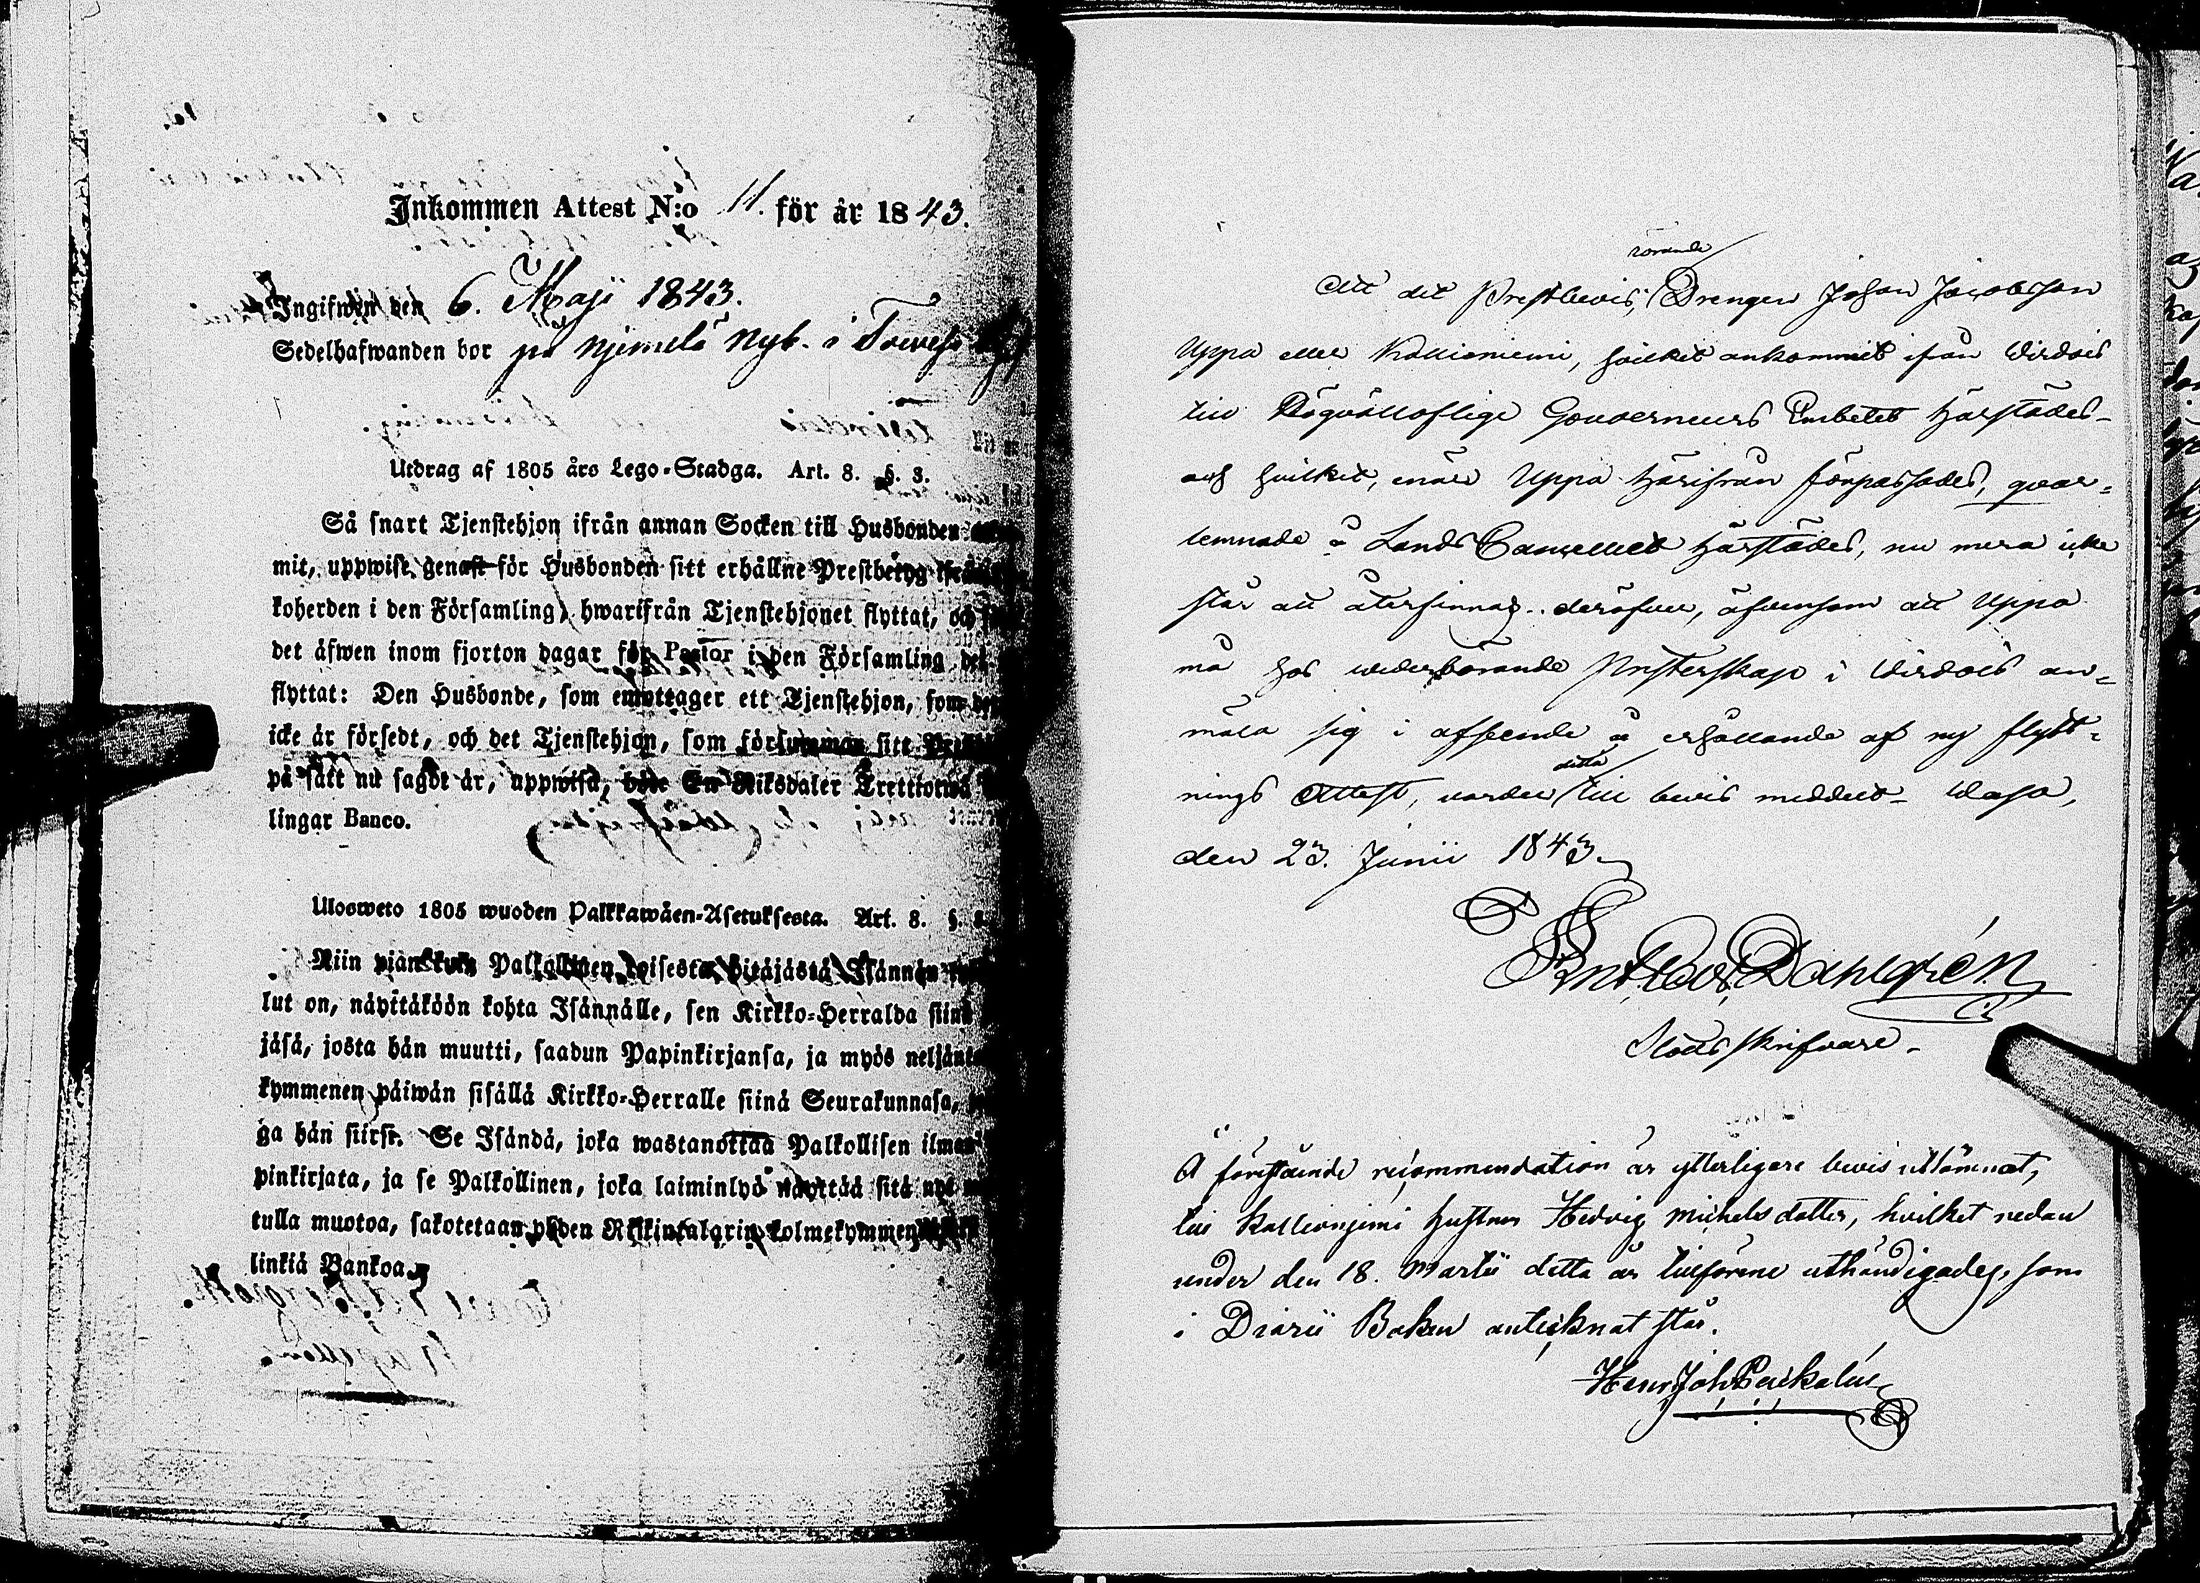 Inkommen Attest N:o 11. för år 1843.
Ingifwen den 6. Maji 1843.
Sedelhafwanden bor på Njemelä Nyb. i
Utdrag af 1805 års Lego-Stadga. Art. 8. §. 3.
Så snart Tjenstehjon ifrån annan Socken till Husbonden
mit, uppwise genast för Husbonden sitt erhållne Prestbetyg
koherden i den Församling, hwarifrån Tjenstehjonet flyttat, och
det äfwen inom fjorton dagar för Pastor i den Församling, det
flyttat: Den Husbonde, som emottager ett Tjenstehjon, som der
icke är försedt, och det Tjenstehjon, som försummar sitt
på sätt nu sagdt är, uppwisa, böte En Riksdaler Trettiotwå
lingar Banco.
Ulosweto 1805 wuoden Palkkawäen-Asetuksesta. Art. 8. §.
Niin pian kuin Palkollinen toisesta pitäjästä Isännän
lut on, näyttäköön kohta Isännälle, sen Kirkko-Herralda siinä
jäsä, josta hän muutti, saadun Papinkirjansa, ja myös neljäntoista
kymmenen päiwän sisällä Kirkko-Herralle siinä Seurakunnasa,
ga hän siirsi. Se Isändä, joka wastanottaa Palkollisen ilman
pinkirjata, ja se Palkollinen, joka laiminlyö näyttää sitä nyt
tulla muotoa, sakotetaan yhden Rikintalarin kolmekymmen
linkiä Bankoa.
rörande
Att det Prestbevis, Drengen Johan Jacobsson
Uppa eller Kallioniemi, hvilket ankommit ifrån Wirdois
till Högvällofliga Gouverneurs Embetet härstädes-
och hvilket, enär Uppa härifrån förpassades, qvar-
lemnade å Lands Cancelliet härstädes, nu mera icke
står att återfinnas. deröfver, äfvensom att Uppa
må hos wederbörande Presterskap i Wirdois an-
mäla sig i afseende å erhållande af ny flytt-
nings Attest, varder detta till bevis meddelt- Wasa,
den 23. Junii 1843.
Dahlgrén
Slottsskrifvare.
Å förestående recommendation är ytterligare bevis utlämnat,
till Kallionjemi hustrun Hedvig Michelsdotter, hvilket redan
under den 18. Martii detta år tillförene uthändigades, som
i Diarii Boken antecknat står.
Henr Joh